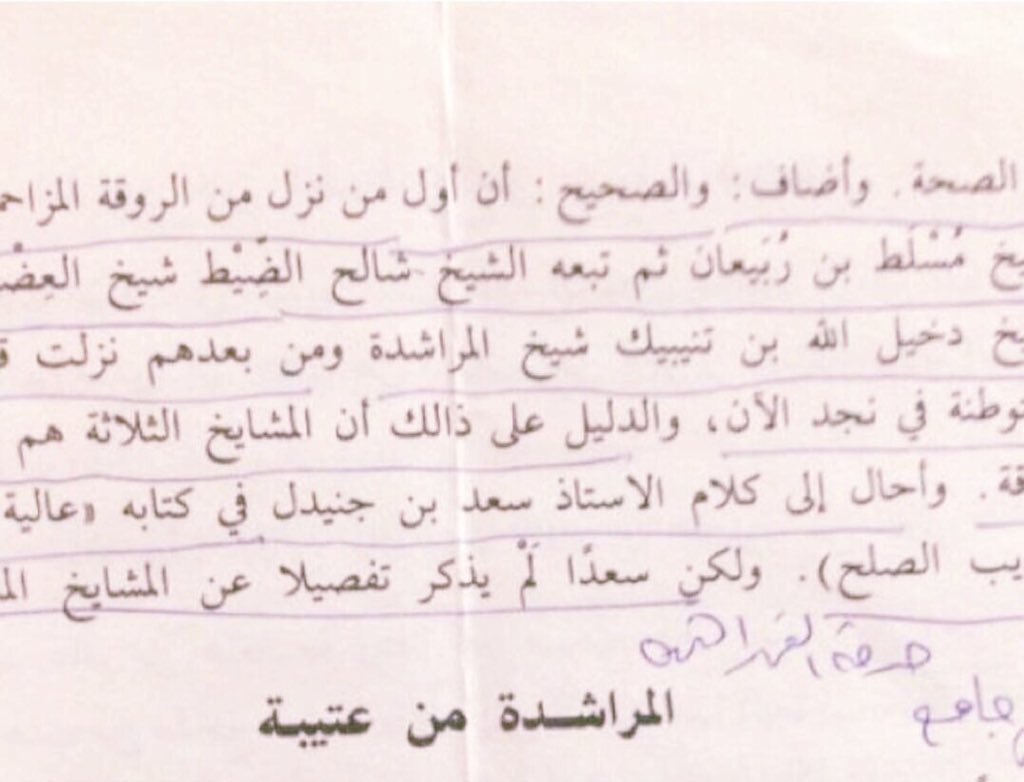 الصحة. وأضاف: والصحيح: أن أول من نزل من الروقة المزاحم
يخ مُسْلَط بن رُبَيعان ثم تبعه الشيخ شالح الضِّيْط شيخ العِضْ
يخ دخيل الله بن تنيبيك شيخ المراشدة ومن بعدهم نزلت ق
توطنة في نجد الآن، والدليل على ذالك أن المشايخ الثلاثة هم
قة. وأحال إلى كلام الاستاذ سعد بن جنيدل في كتابه «عالية
يب الصلح). ولكن سعدًا لَمْ يذكر تفصيلا عن المشايخ الم
المراشدة من عتيبة
جامع